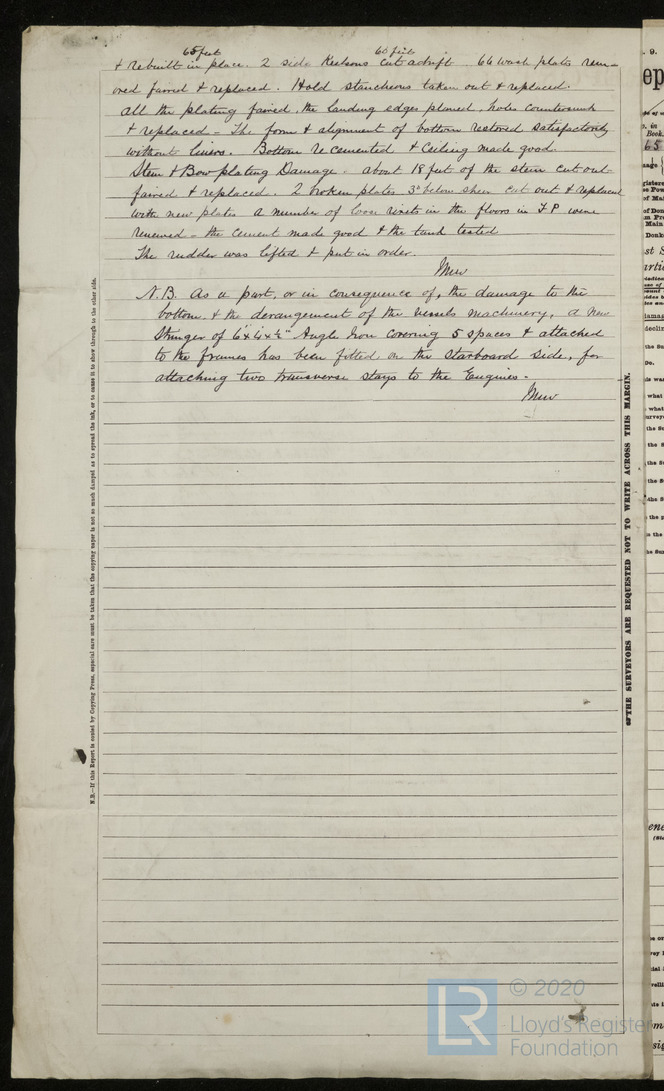 65 feet 60 feet
& rebuilt in place. 2 side Keelsons cut adrift 66 wash plats rem-
oved faired & replaced. Hold stancheons taken out & replaced.
All the plating faired, the landing edges planed, holes countersunk
& replaced - The form & alignment of bottom restored satisfactorily
without liners. Bottom recemented & Ceiling made good.
Stem & Bow plating Damage. about 18 feet of the stem cut out
faired & replaced. 2 broken plates 3rd below sheer cut out & replaced
with new plates a number of loose rivets in the floors in F P were
renewed - the cement made good & the tank tested
The rudder was lifted & put in order.
N.B. As a part, or in consequence of, the damage to the
bottom & the derangement of the vessels machinery, a new
Stringer of Angle Iron covering 5 spaces & attached
to the frames has been fitted on the starboard side, for
attaching two transverse stays to the Engines -
N.B.—If this Report is copied by Copying Press, especial care must be taken that the copying paper is not so much damped as to spread the ink, or to cause it to show through to the other side.
THE SURVEYORS ARE REQUESTED NOT TO WRITE ACROSS THIS MARGIN.
LR
© 2020
Lloyd's Register
Foundation